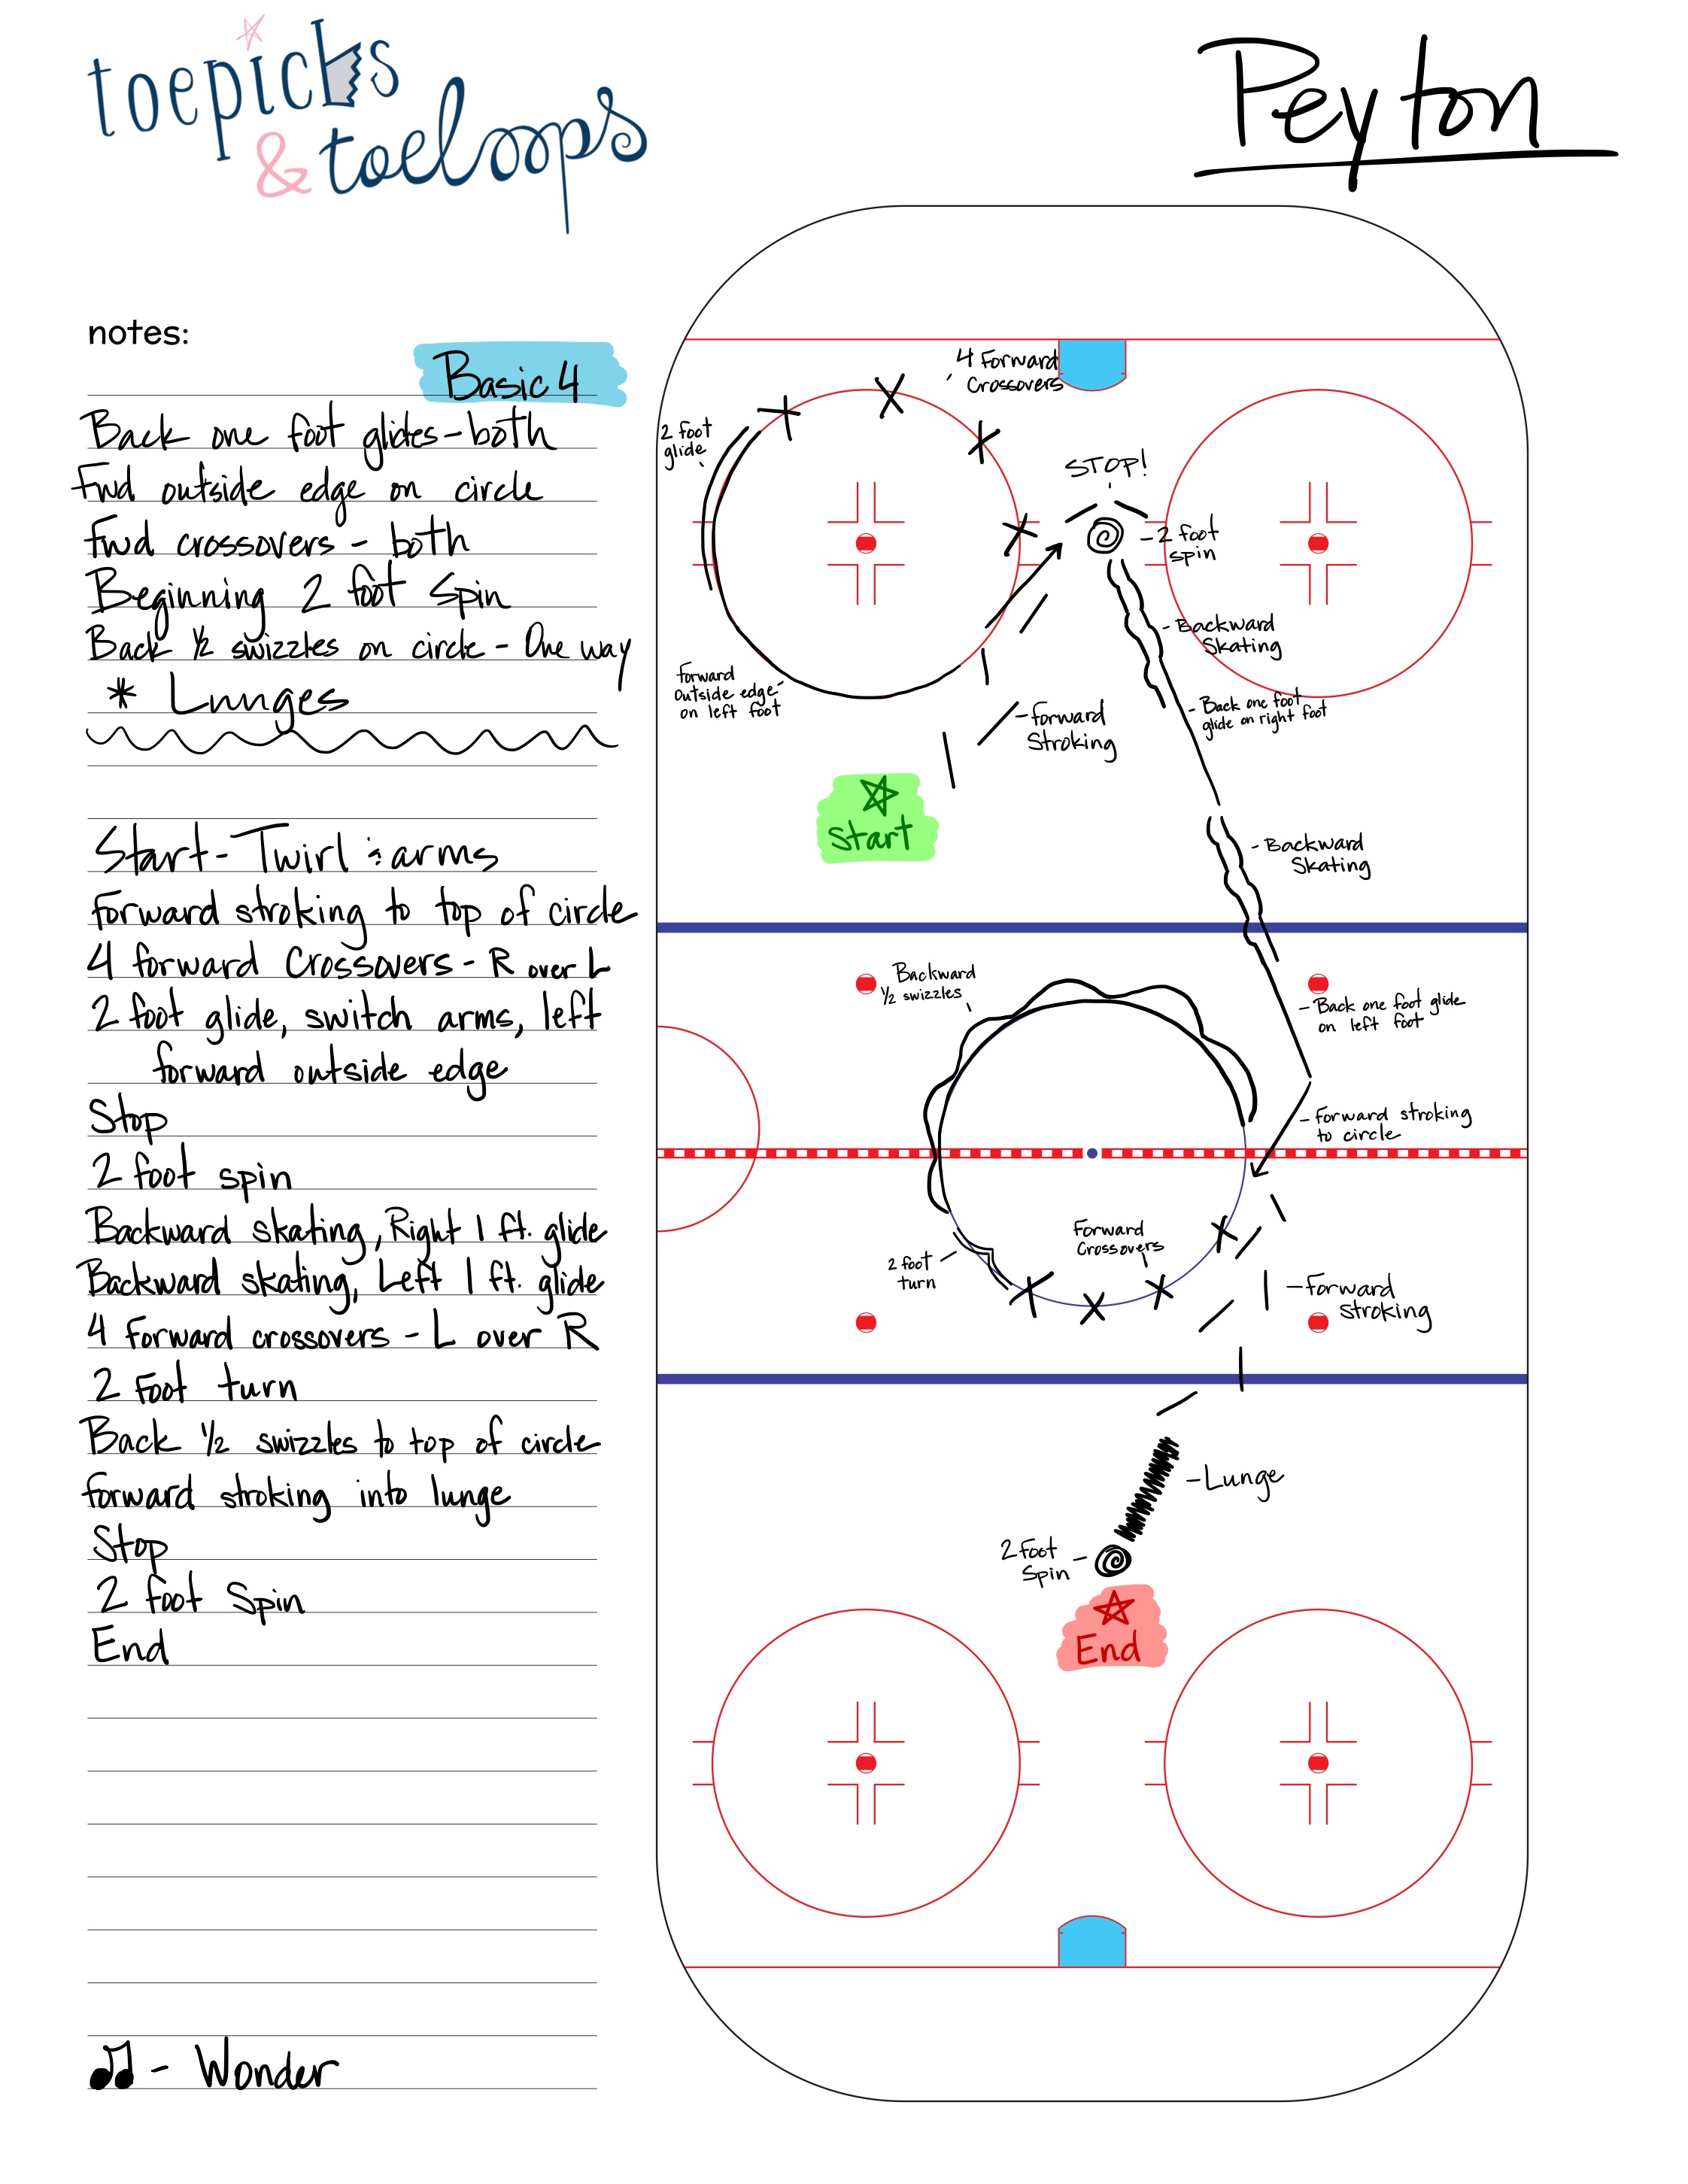 toepicks
& toeloops
Peyton
notes:
Basic 4
Back one foot glides - both
Fwd outside edge on circle
Fwd crossovers - both
Beginning 2 foot Spin
Back ½ swizzles on circle - One way
* Lunges
Start - Twirl & arms
Forward stroking to top of circle
4 forward Crossovers - R over L
2 foot glide, switch arms, left
forward outside edge
Stop
2 foot spin
Backward skating, Right 1 ft. glide
Backward skating, Left 1 ft. glide
4 Forward crossovers - L over R
2 Foot turn
Back ½ swizzles to top of circle
forward stroking into lunge
Stop
2 foot Spin
End
♫ - Wonder
4 Forward
Crossovers
2 foot
glide
STOP!
- 2 foot
spin
- Backward
Skating
forward
outside edge -
on left foot
- Back one foot
glide on right foot
- forward
Stroking
Start
- Backward
Skating
Backward
½ swizzles
- Back one foot glide
on left foot
- forward stroking
to circle
Forward
Crossovers
2 foot
turn
- Forward
stroking
- Lunge
2 foot
Spin
End